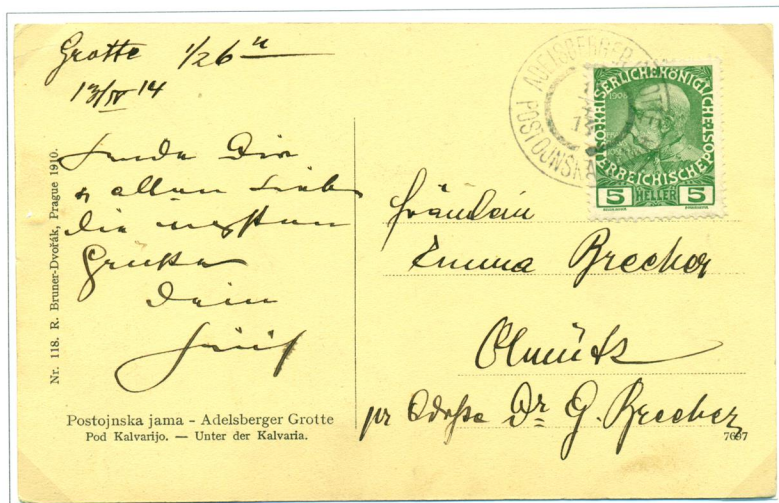 Grotte 1/2 6 u
13/IV 14
Sende Dir
& allen Lieben
die
Grüsse
Dein
Nr. 118. R. Bruner-Dvořák, Prague 1910.
Postojnska jama - Adelsberger Grotte
Pod Kalvarijo. — Unter der Kalvaria.
ADELSBERGER
POSTOJNSKA
KAISERLICHE KÖNIGLICHE
ÖSTERREICHISCHE POST
1908
5 HELLER 5
Fräulein
Emma Brecher
Olmütz
pr Adresse Dr G. Brecher
7697